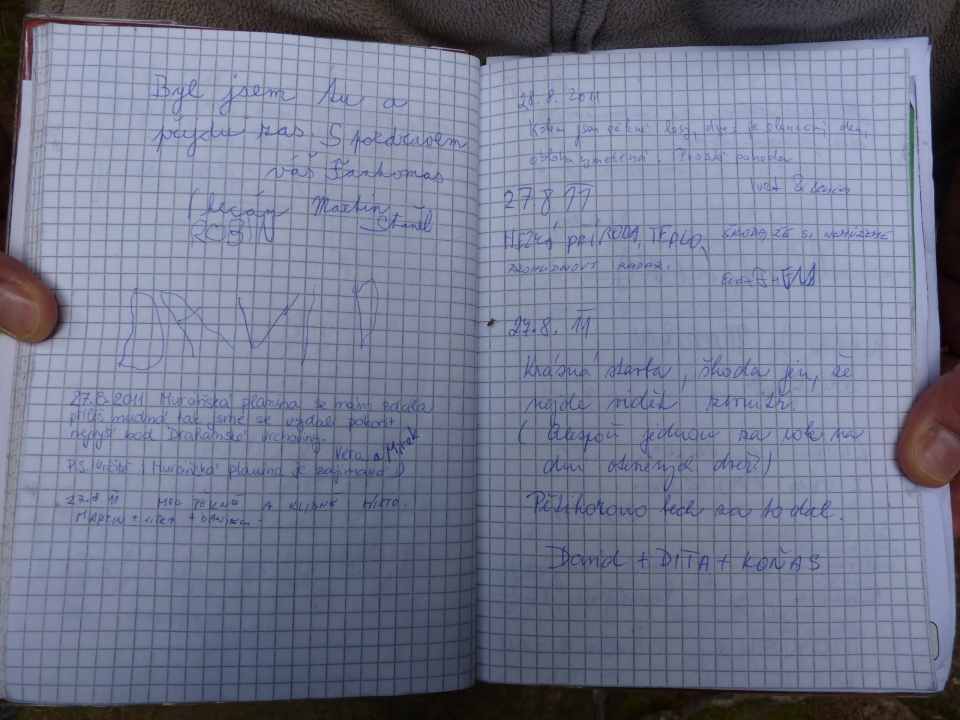 Byl jsem tu a
přijdu zas. S pozdravem
váš Fantomas
Martin
ROBIN Staněk
DAVID
27.8.2011 Muraňská planina se mi zdála
příliš nudná tak jsme se vydali pokořit
nejvyšší bod Drahanské vrchoviny.
Věra a Mirek
P.S. Určitě i Muraňská planina je zajímavá :)
27.8.11 MOC PĚKNÉ A KLIDNÉ MÍSTO.
MARTIN + +
28.8.2011
Kolem jsou pěkné lesy, dnes je slunečný den,
obloha zmetená. Prostě pohoda
27.8.11
HEZKÁ PŘÍRODA, TEPLO, ŠKODA ŽE SI NEMŮŽEME
PROHLÉDNOUT RADAR.
27.8.11
Krásná stavba, škoda jen, že
nejde vidět zevnitř.
(Alespoň jednou za rok na
dni otevřených dveří)
za to dal.
David + DITA + KOŇAS